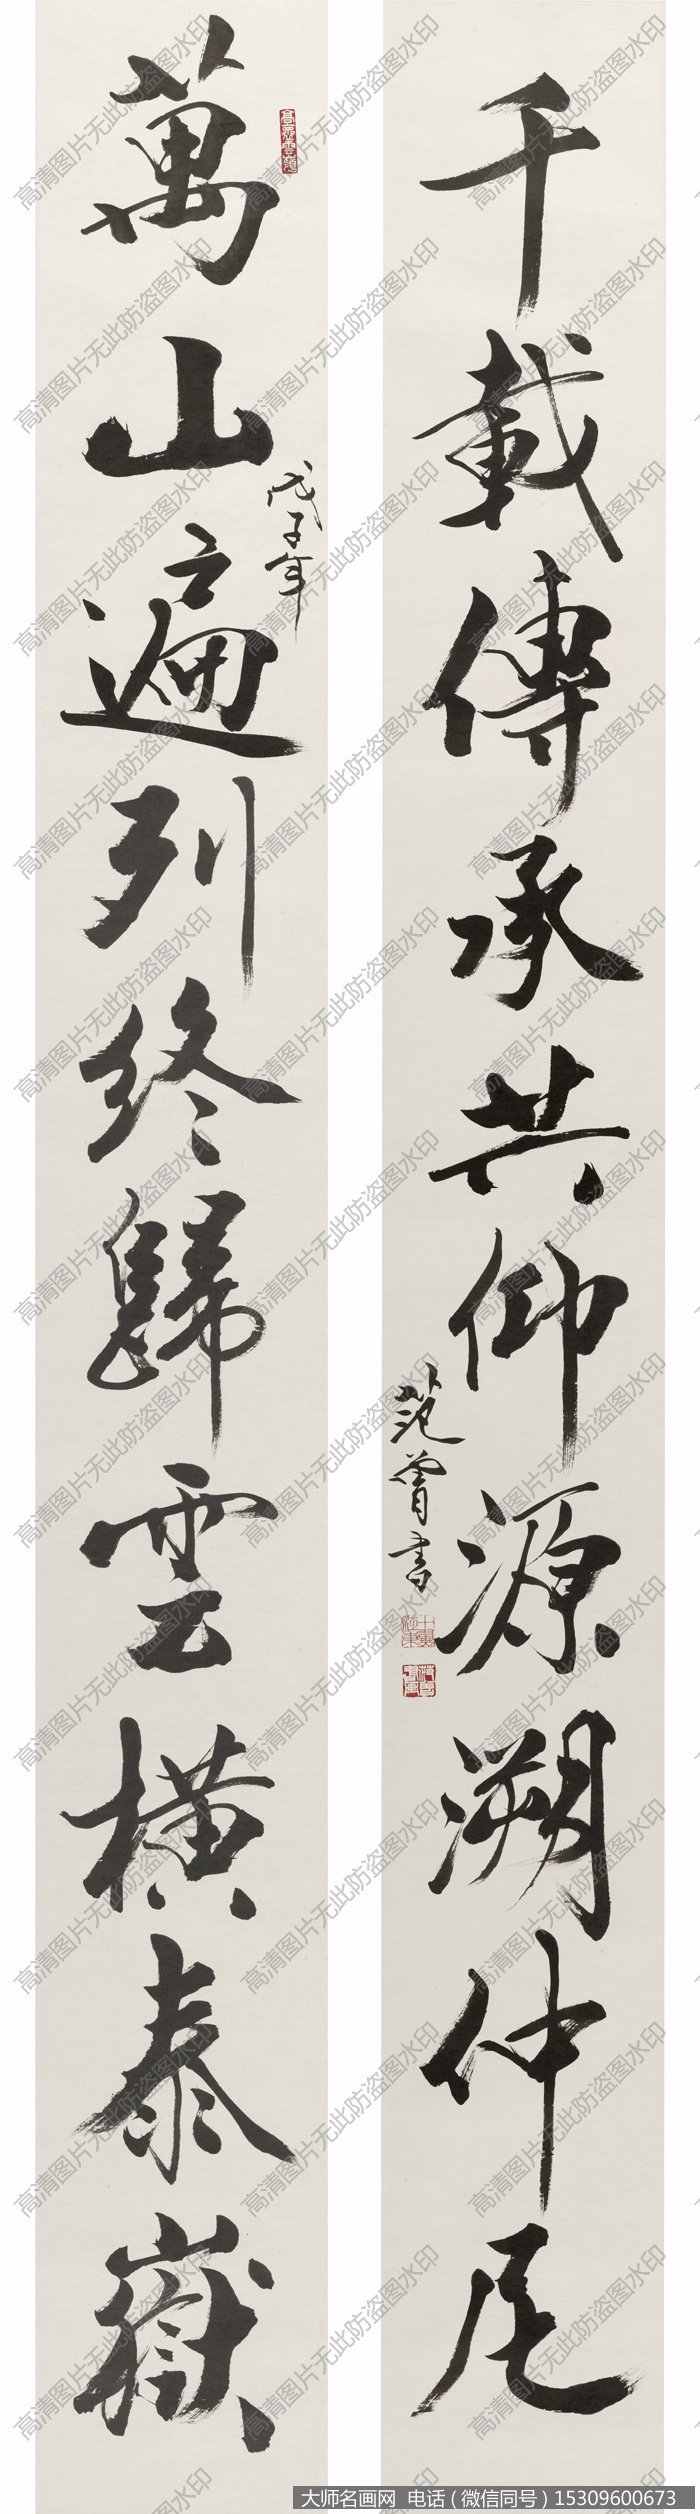 萬山遍列終歸雲橫泰嶽
戊子年
千載傳承共仰源溯仲尼
范曾書
高清图片无此防盗图水印
大师名画网 电话（微信同号）15309600673